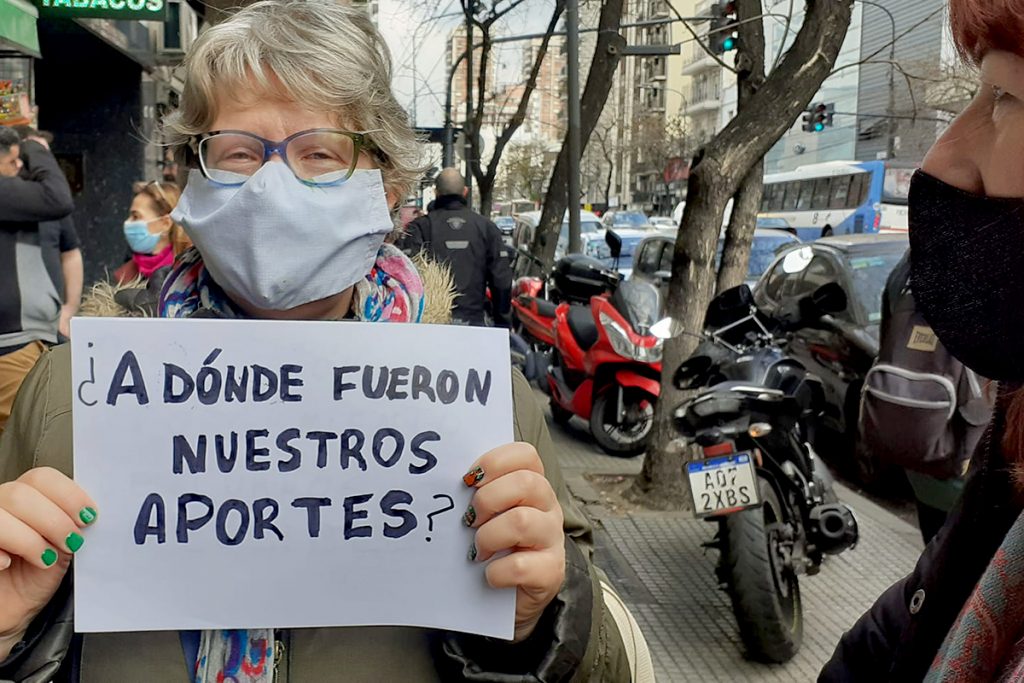 TABACOS
¿A DÓNDE FUERON
NUESTROS
APORTES?
A07
2XBS